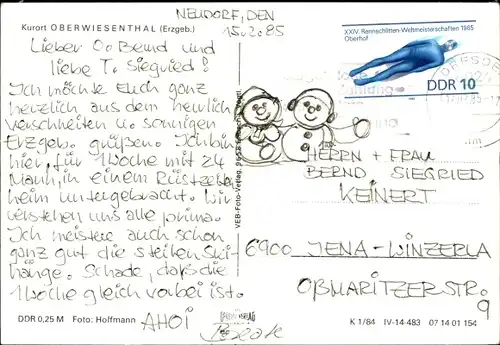 Kurort OBERWIESENTHAL (Erzgeb.)
NEUDORF, DEN
15.2.85
XXIV. Rennschlitten-Weltmeisterschaften 1985
Oberhof
DDR 10
Lieber O. Bernd und
liebe T. Siegried!
Ich möchte Euch ganz
herzlich aus dem herrlich
verschneiten u. sonnigen
Erzgeb. grüßen. Ich bin
hier, für 1 Woche mit 24
Mann, in einem Rüstzeit-
heim untergebracht. Wir
verstehen uns alle prima.
Ich meistere auch schon
ganz gut die steilen Ski-
hänge. Schade, daß die
1 Woche gleich vorbei ist.
AHOI
HERRN + FRAU
BERND SIEGRIED
KEINERT
6900 JENA-WINZERLA
OßMARITZERSTR.
9
VEB-Foto-Verlag
DDR 0,25 M Foto: Hoffmann
K 1/84 IV-14-483 07 14 01 154